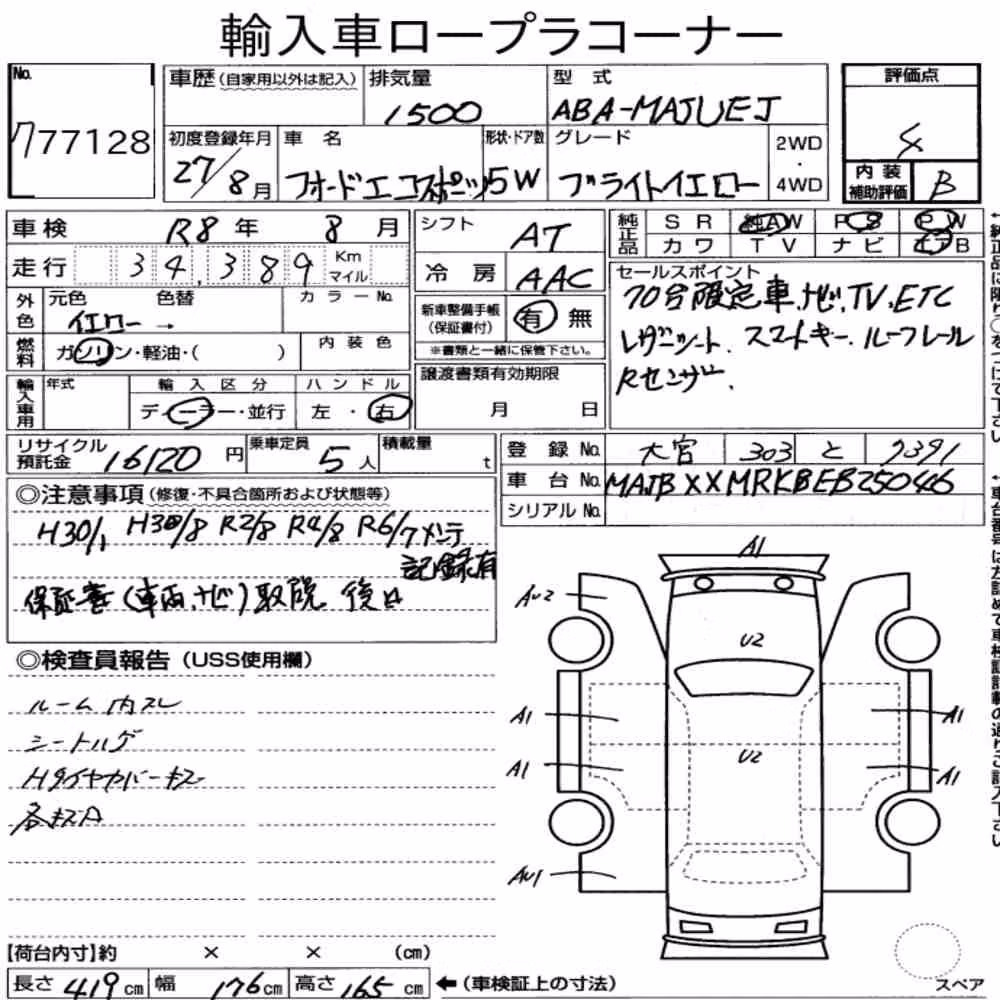 輸入車ロープラコーナー
No.
777128
車歴 (自家用以外は記入)
排気量
1500
型 式
ABA-MAJUEJ
評価点
4
初度登録年月
27/8月
車 名
フォードエコスポーツ
形状・ドア数
5W
グレード
ブライトイエロー
2WD
・
4WD
内 装
補助評価
B
車検 R8年 8月
走行 34,389 Km
マイル
外色
元色 色替 カラーNo.
イエロー →
燃料
ガソリン・軽油・( )
内 装 色
輸入車用
年式
輸 入 区 分
ディーラー・並行
ハ ン ド ル
左 ・ 右
シフト AT
冷 房 AAC
新車整備手帳
(保証書付)
有 無
※書類と一緒に保管下さい。
譲渡書類有効期限
月 日
純正品
S R 純AW P S P W
カ ワ T V ナ ビ エアB
セールスポイント
70台限定車、ナビ、TV、ETC
レザーシート、スマートキー、ルーフレール
Rセンサー、
リサイクル
預託金
16120 円
乗車定員
5 人
積載量
t
登 録 No. 大宮 303 と 9391
車 台 No. MAJBXXMRKBEB25046
シリアル No.
◎注意事項 (修復・不具合箇所および状態等)
H30/1 H30/8 R2/8 R4/8 R6/7 メンテ
記録有
保証書(車両、ナビ)取説 後日
◎検査員報告 (USS使用欄)
ルーム内スレ
シート
各キズA
A1
AU2
U2
A1
A1
A1
U2
A1
AU1
【荷台内寸】約 × × (cm)
長さ 419 cm 幅 176 cm 高さ 165 cm ←(車検証上の寸法)
スペア